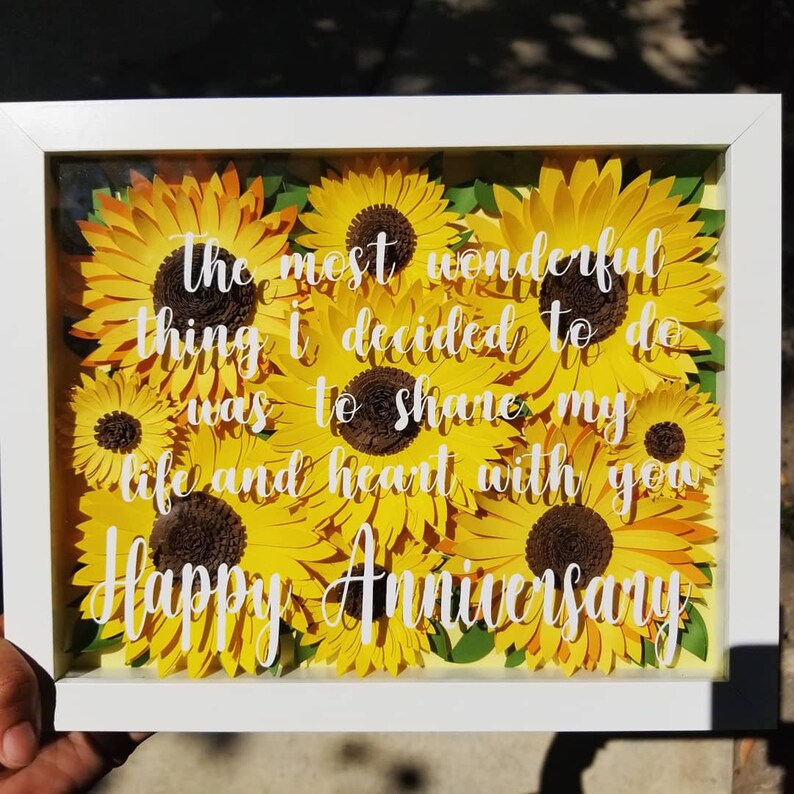 The most wonderful
thing i decided to do
was to share my
life and heart with you
Happy Anniversary